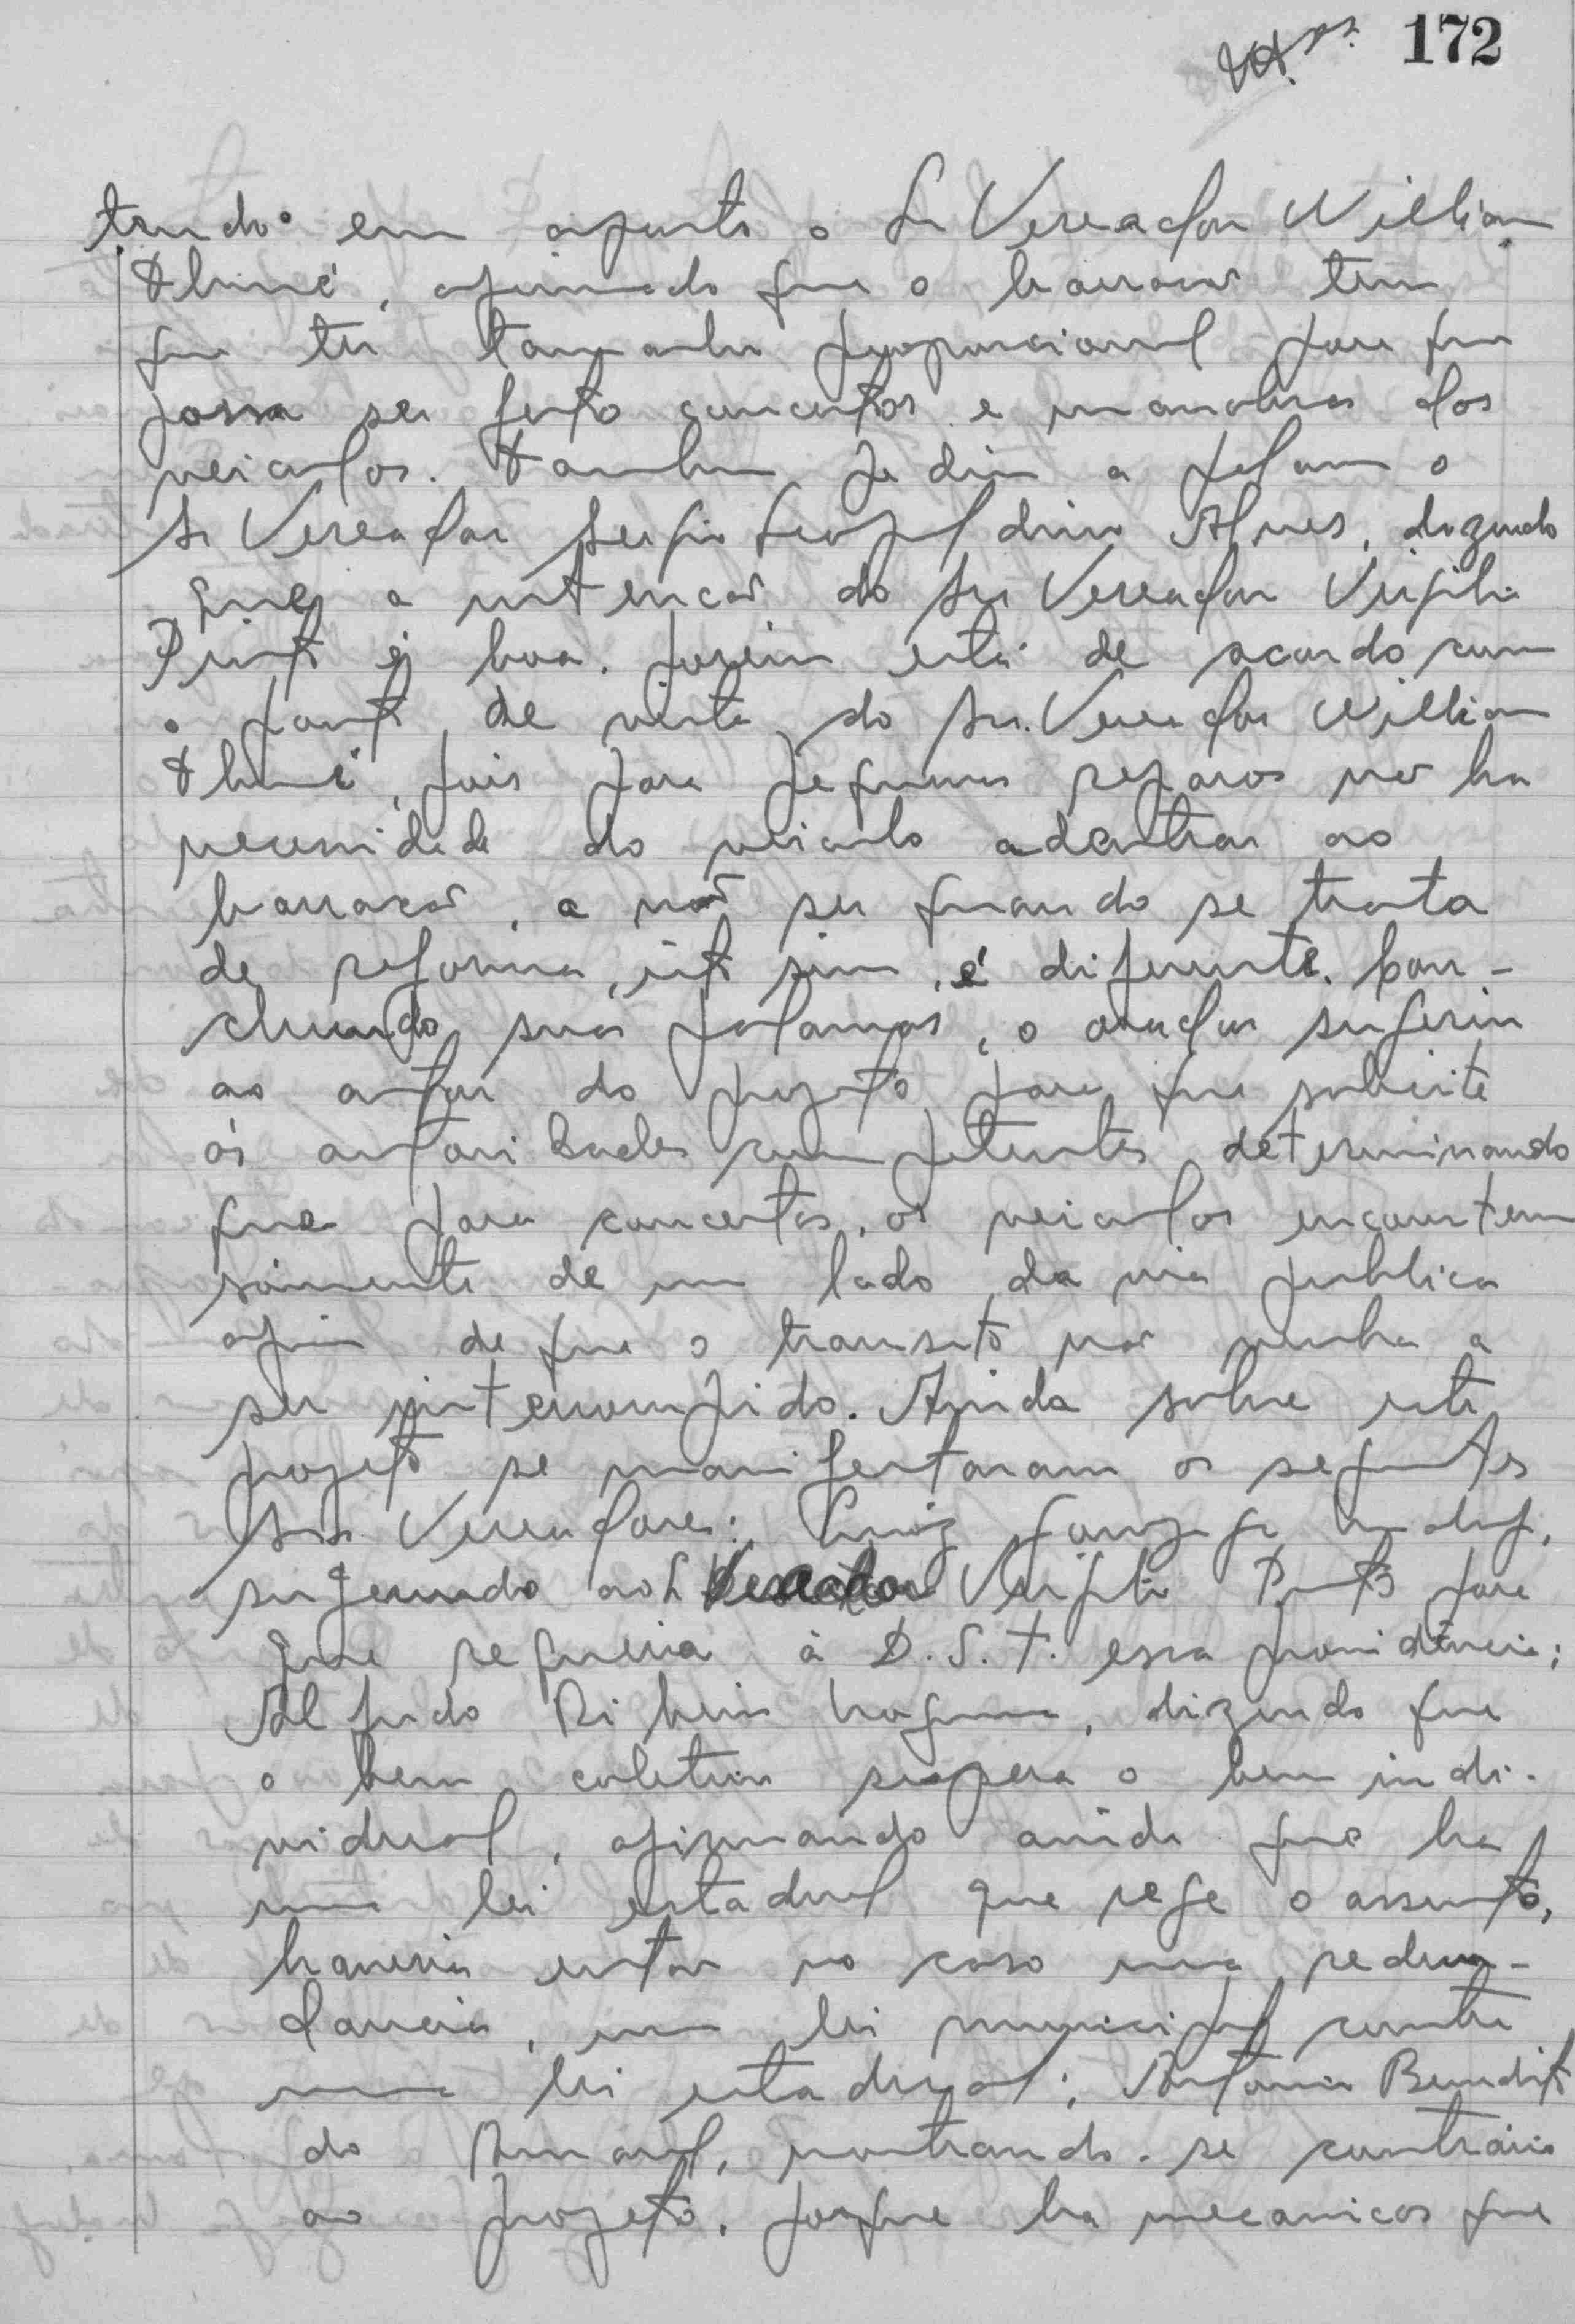 172
tendo em aparte o Sr Vereador William
Thomé, afirmado que o barracão tem
que ter tamanho proporcional para que
possa ser feito concertos e manobras dos
veiculos. Tambem pediu a palavra o
Sr Vereador Sergio Leopoldino Alves, dizendo
que a intenção do Snr Vereador Virgilio
Pinto é boa. porém está de acordo com
o ponto de vista do Snr. Vereador William
Thomé, pois para pequenos reparos não ha
necessidade do veiculo adentrar ao
barracão, a não ser quando se trata
de reforma, isto sim, é diferente. Con-
cluindo suas palavras, o orador sugeriu
ao autor do projeto para que solicite
ás autoridades competentes determinando
que para concertos, os veiculos encontem
sómente de um lado da via publica
afim de que o transito não venha a
ser interrompido. Ainda sobre este
projeto se manifestaram os seguintes
Srs. Vereadores: Luiz
sugerindo ao Sr Vereador Virgilio Pinto para
que requeira à D.S.T. essa providência;
Alfredo Ribeiro Nogueira, dizendo que
o bem coletivo supera o bem indi-
vidual, afirmando ainda que ha
uma lei estadual que rege o assunto,
haveria então no caso uma redun-
dancia, uma lei municipal contra
uma lei estadual; Antonio Benedito
do Amaral, mostrando-se contrário
ao projeto, porque ha mecanicos que